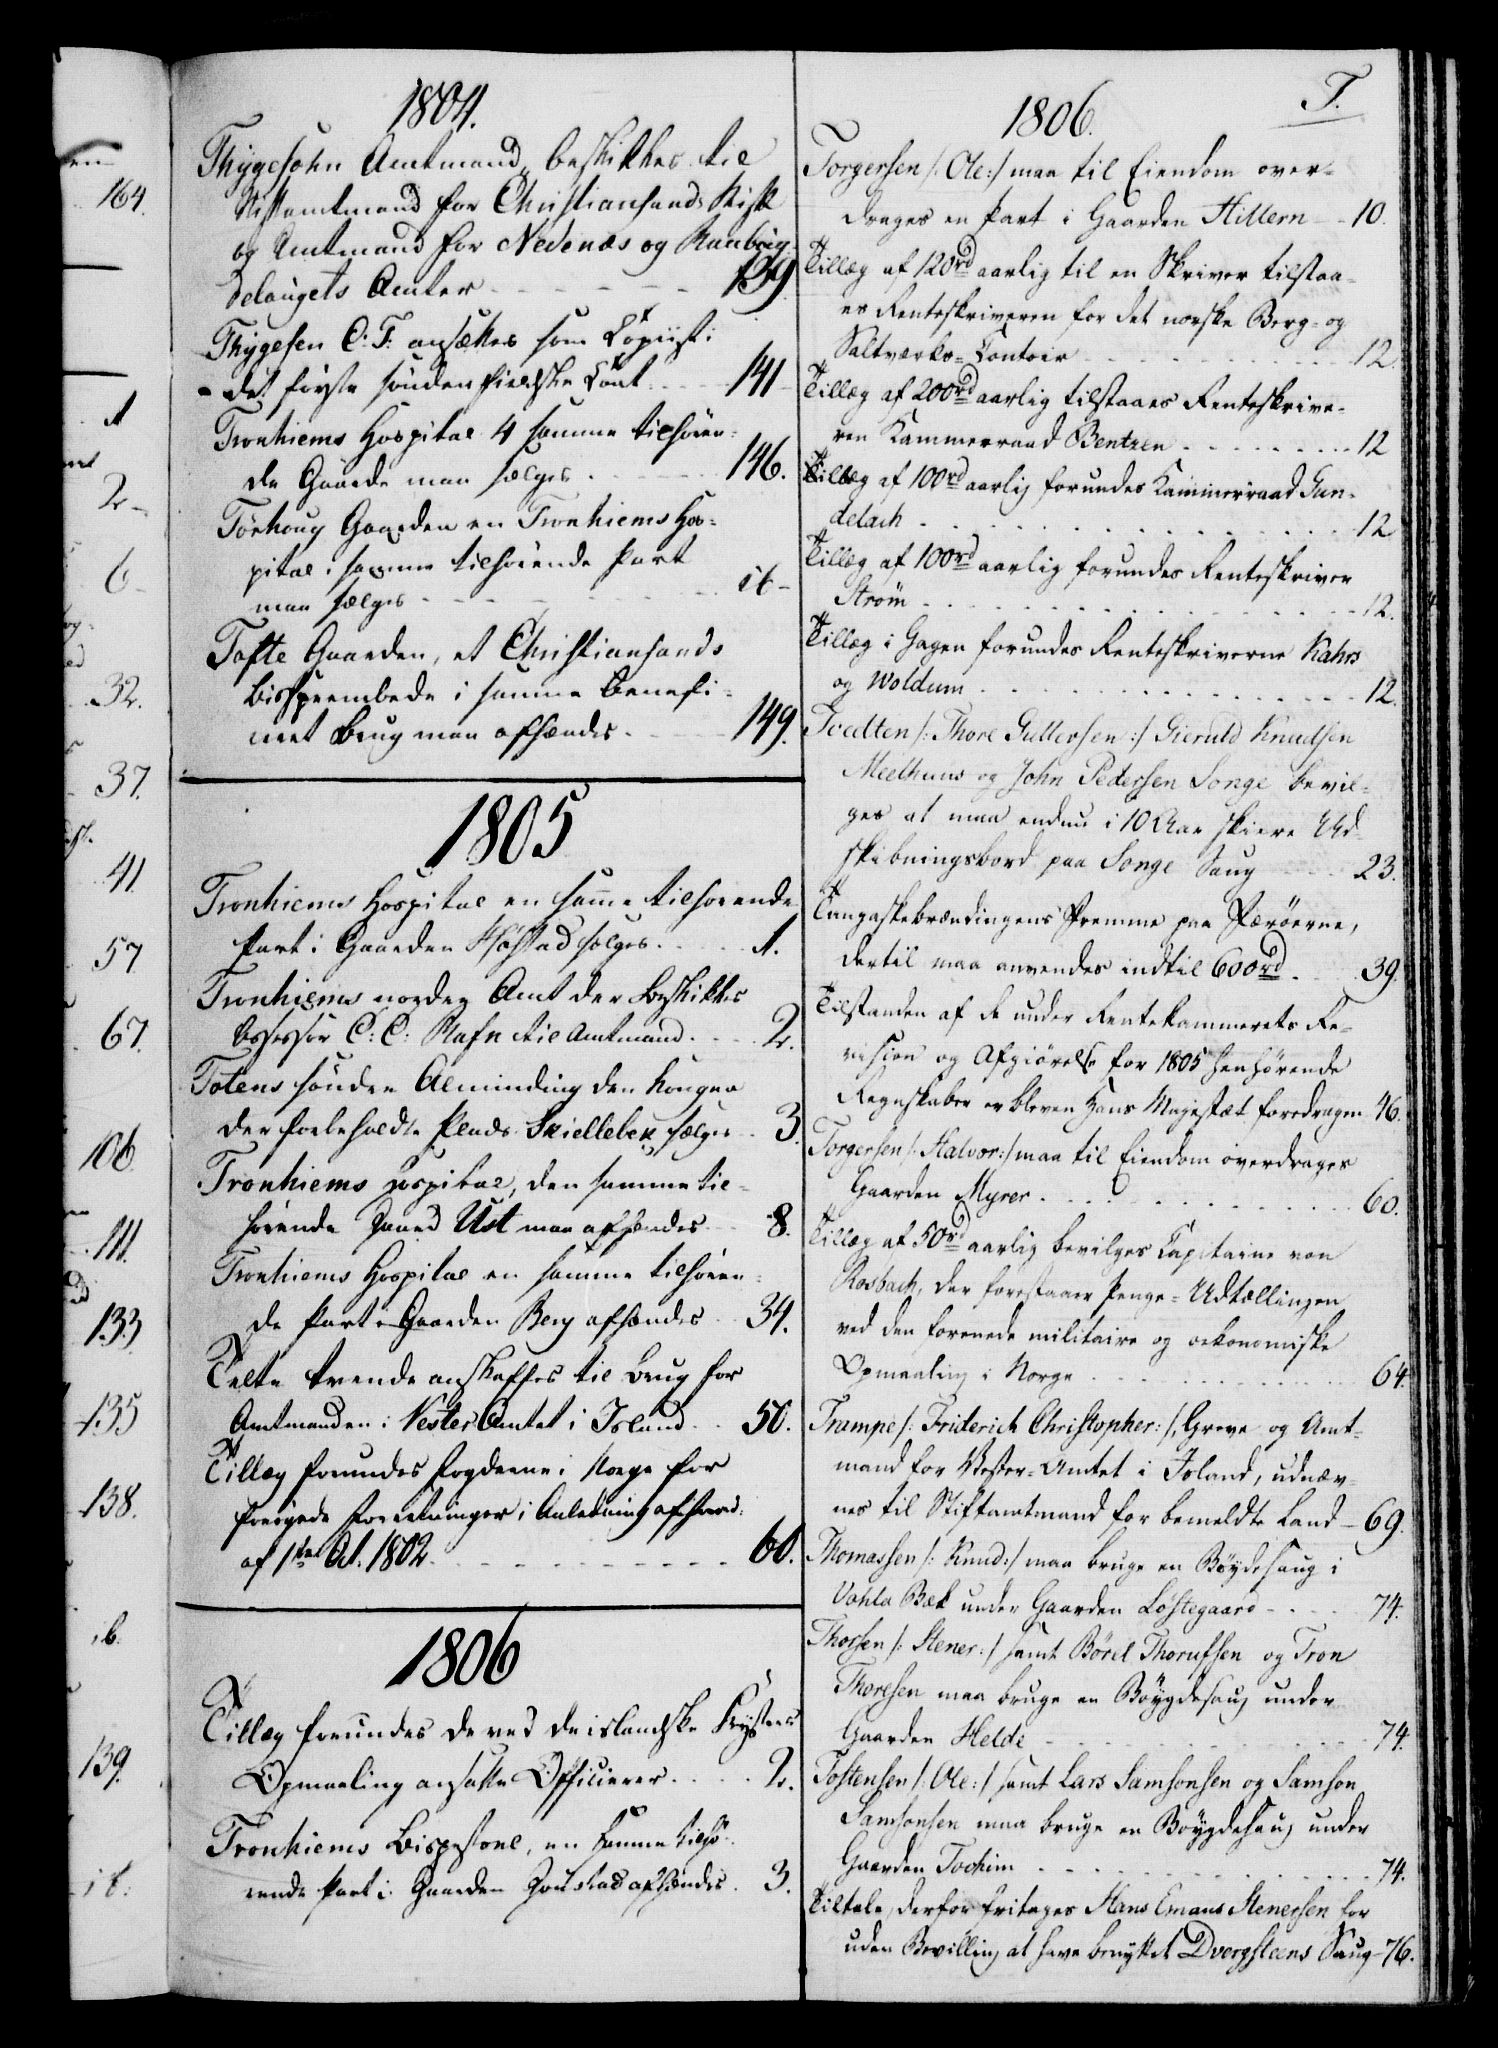 1804.
Thygesohn Amtmand, beskikkes til
Stiftamtmand for Christiansands Stift
og Amtmand for Nedenæs og Raabøig-
delaugets Amter 139
Thygesen C: F: ansættes som Copiist i
det første søndenfieldske Cont. 141
Tronhiems Hospital 4 samme tilhøren-
de Gaarde maa sælges 146.
Tørhoug Gaarden en Tronhiems Hos-
pital i samme tilhørende Part
maa sælges it-
Tofte Gaarden, et Christiansands
Bisspeembede i samme benefi-
ceret Brug maa afhændes 149.
1805
Tronhiems Hospital en samme tilhørende
Part i Gaarden sælges 1.
Tronhiems nordre Amt der beskikkes
Assessor C: C: Rafn til Amtmand 2.
Totens søndre Alminding den Kongen
der forbeholdte Plads Skiellebek sælges 3.
Tronhiems Hospital, den samme til-
hørende Gaard Ust maa afhændes 8.
Tronhiems Hospital en samme tilhøren-
de Part i Gaarden Berg afhændes 34.
Telte trende anskaffes til Brug for
Amtmanden i Vester Amtet i Island 50.
Tillæg forundes Fogderne i Norge for
forøgede Forretninger i Anledning af
af 1ste Oct. 1802 60.
1806
Tillæg forundes de ved de islandske Kysters
Opmaaling ansatte Officierer 2.
Tronhiems Bispestoel, en samme tilhø-
rende Part i Gaarden afhændes 3.
T.
1806.
Torgersen /: Ole:/ maa til Eiendom over-
drages en Part i Gaarden Hillern 10.
Tillæg af 120rd aarlig til en Skriver tilstaa-
es Renteskriveren for det norske Berg- og
Saltværks-Contoir 12.
Tillæg af 200rd aarlig tilstaaes Renteskrive-
ren Kammerraad Bentzen 12
Tillæg af 100rd aarlig forundes Kammerraad Gun-
delach 12
Tillæg af 100rd aarlig forundes Renteskriver
Strøm 12.
Tillæg i Gagen forundes Renteskriverne Kahrs
og Woldum 12.
Tvedten /: Thore Gullersen :/ Gieruld Knudsen
Meelhuus og John Pedersen Songe bevil-
ges at maa endnu i 10 Aar skiere Ud-
skibningsbord paa Songe Saug 23.
Tangaskebrændingens Fremme paa Færøerne,
dertil maa anvendes indtil 600rd 39.
Tilstanden af de under Rentekammerets Re-
vision og Afgiørelse for 1805 henhørende
Regnskaber er bleven Hans Majestæt foredragen 46.
Torgersen /: Halvor:/ maa til Eiendom overdrages
Gaarden Myrer 60.
Tillæg af 50rd aarlig bevilges Capitaine von
Rosbach, der forestaaer Penge-Udtællingen
ved den forenede militaire og oekonomiske
Opmaaling i Norge 64.
Trampe /: Friderich Christopher:/, Greve og Amt-
mand for Vester-Amtet i Island, udnæv-
nes til Stiftamtmand for bemeldte Land 69.
Thomassen /: Knud:/ maa bruge en Bøydesaug i
Vahla Bæk under Gaarden Løstegaard 74.
Thorsen /: Stener:/ samt Børel Thorufsen og Tron
Thoresen maa bruge en Bøygdesaug under
Gaarden Helde 74.
Tostensen /: Ole:/ samt Lars Samsonsen og Samson
Samsonsen maa bruge en Bøygdesaug under
Gaarden Tochim 74.
Tiltale, derfor fritages Hans Emans Stenersen for
uden Bevilling at have benyttet Dvergsteens Saug 76.
164.
1
2-
6-
32.
37.
41
57
67.
106
111.
133
135
138.
ib.
139.
it.